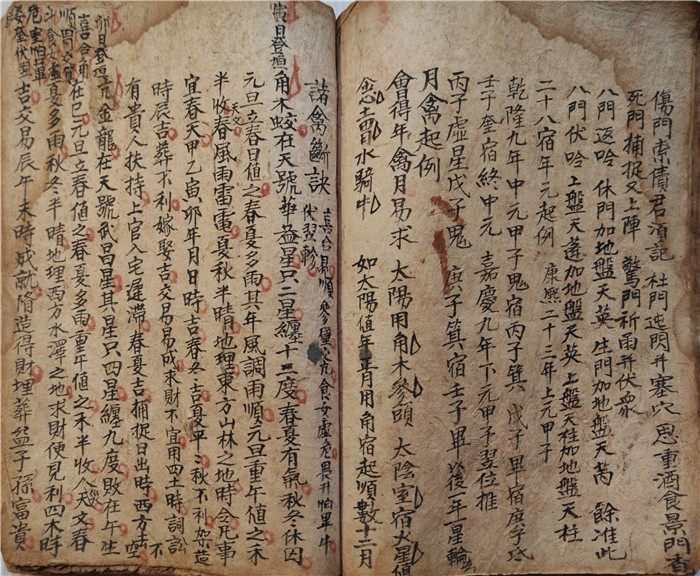 傷門索債君須記 杜門逃閃并塞穴 思量酒食景門
死門捕捉又上陣 驚門祈雨并伏眾
八門返吟 休門加地盤天英 生門加地盤天芮 餘准此
八門伏吟 上盤天蓬加地盤天英 上盤天柱加地盤天柱
二十八宿年元起例 康熙二十三年上元甲子
乾隆九年中元甲子鬼宿丙子箕 戊子畢宿庚子氐
壬子奎宿終中元 嘉慶九年下元甲子翌位推
丙子虛星戊子鬼 庚子箕宿壬子畢以後一年星輪
月禽起例
會得年禽月易求 太陽用角木參頭 太陰室宿火星
如太陽值年正月用角宿起順數十二月
諸禽斷訣
角木蛟在天號 益星只二星纏十三度春夏有氣秋冬休囚
元旦立春日值之春夏多雨其年風調雨順元旦重午值之禾
半收春風雨雷電夏秋半晴地理東方山林之地時合凡事
宜春天甲乙寅卯年月日時吉春冬吉夏平秋不利架造
時辰吉葬不利嫁娶吉交易易成求財不宜用四土時詞訟不
有貴人扶持上官入宅遲滯春夏吉捕捉日出時西方去
亢金龍在天號武昌星其星只四星纏九度敗在午生
在巳元旦立春值之春夏多雨重午值之禾半收天文春
夏多雨秋冬半晴地理西方水澤之地求財便見利四木時
吉交易辰午未時成就脩造得財埋葬益子孫富貴